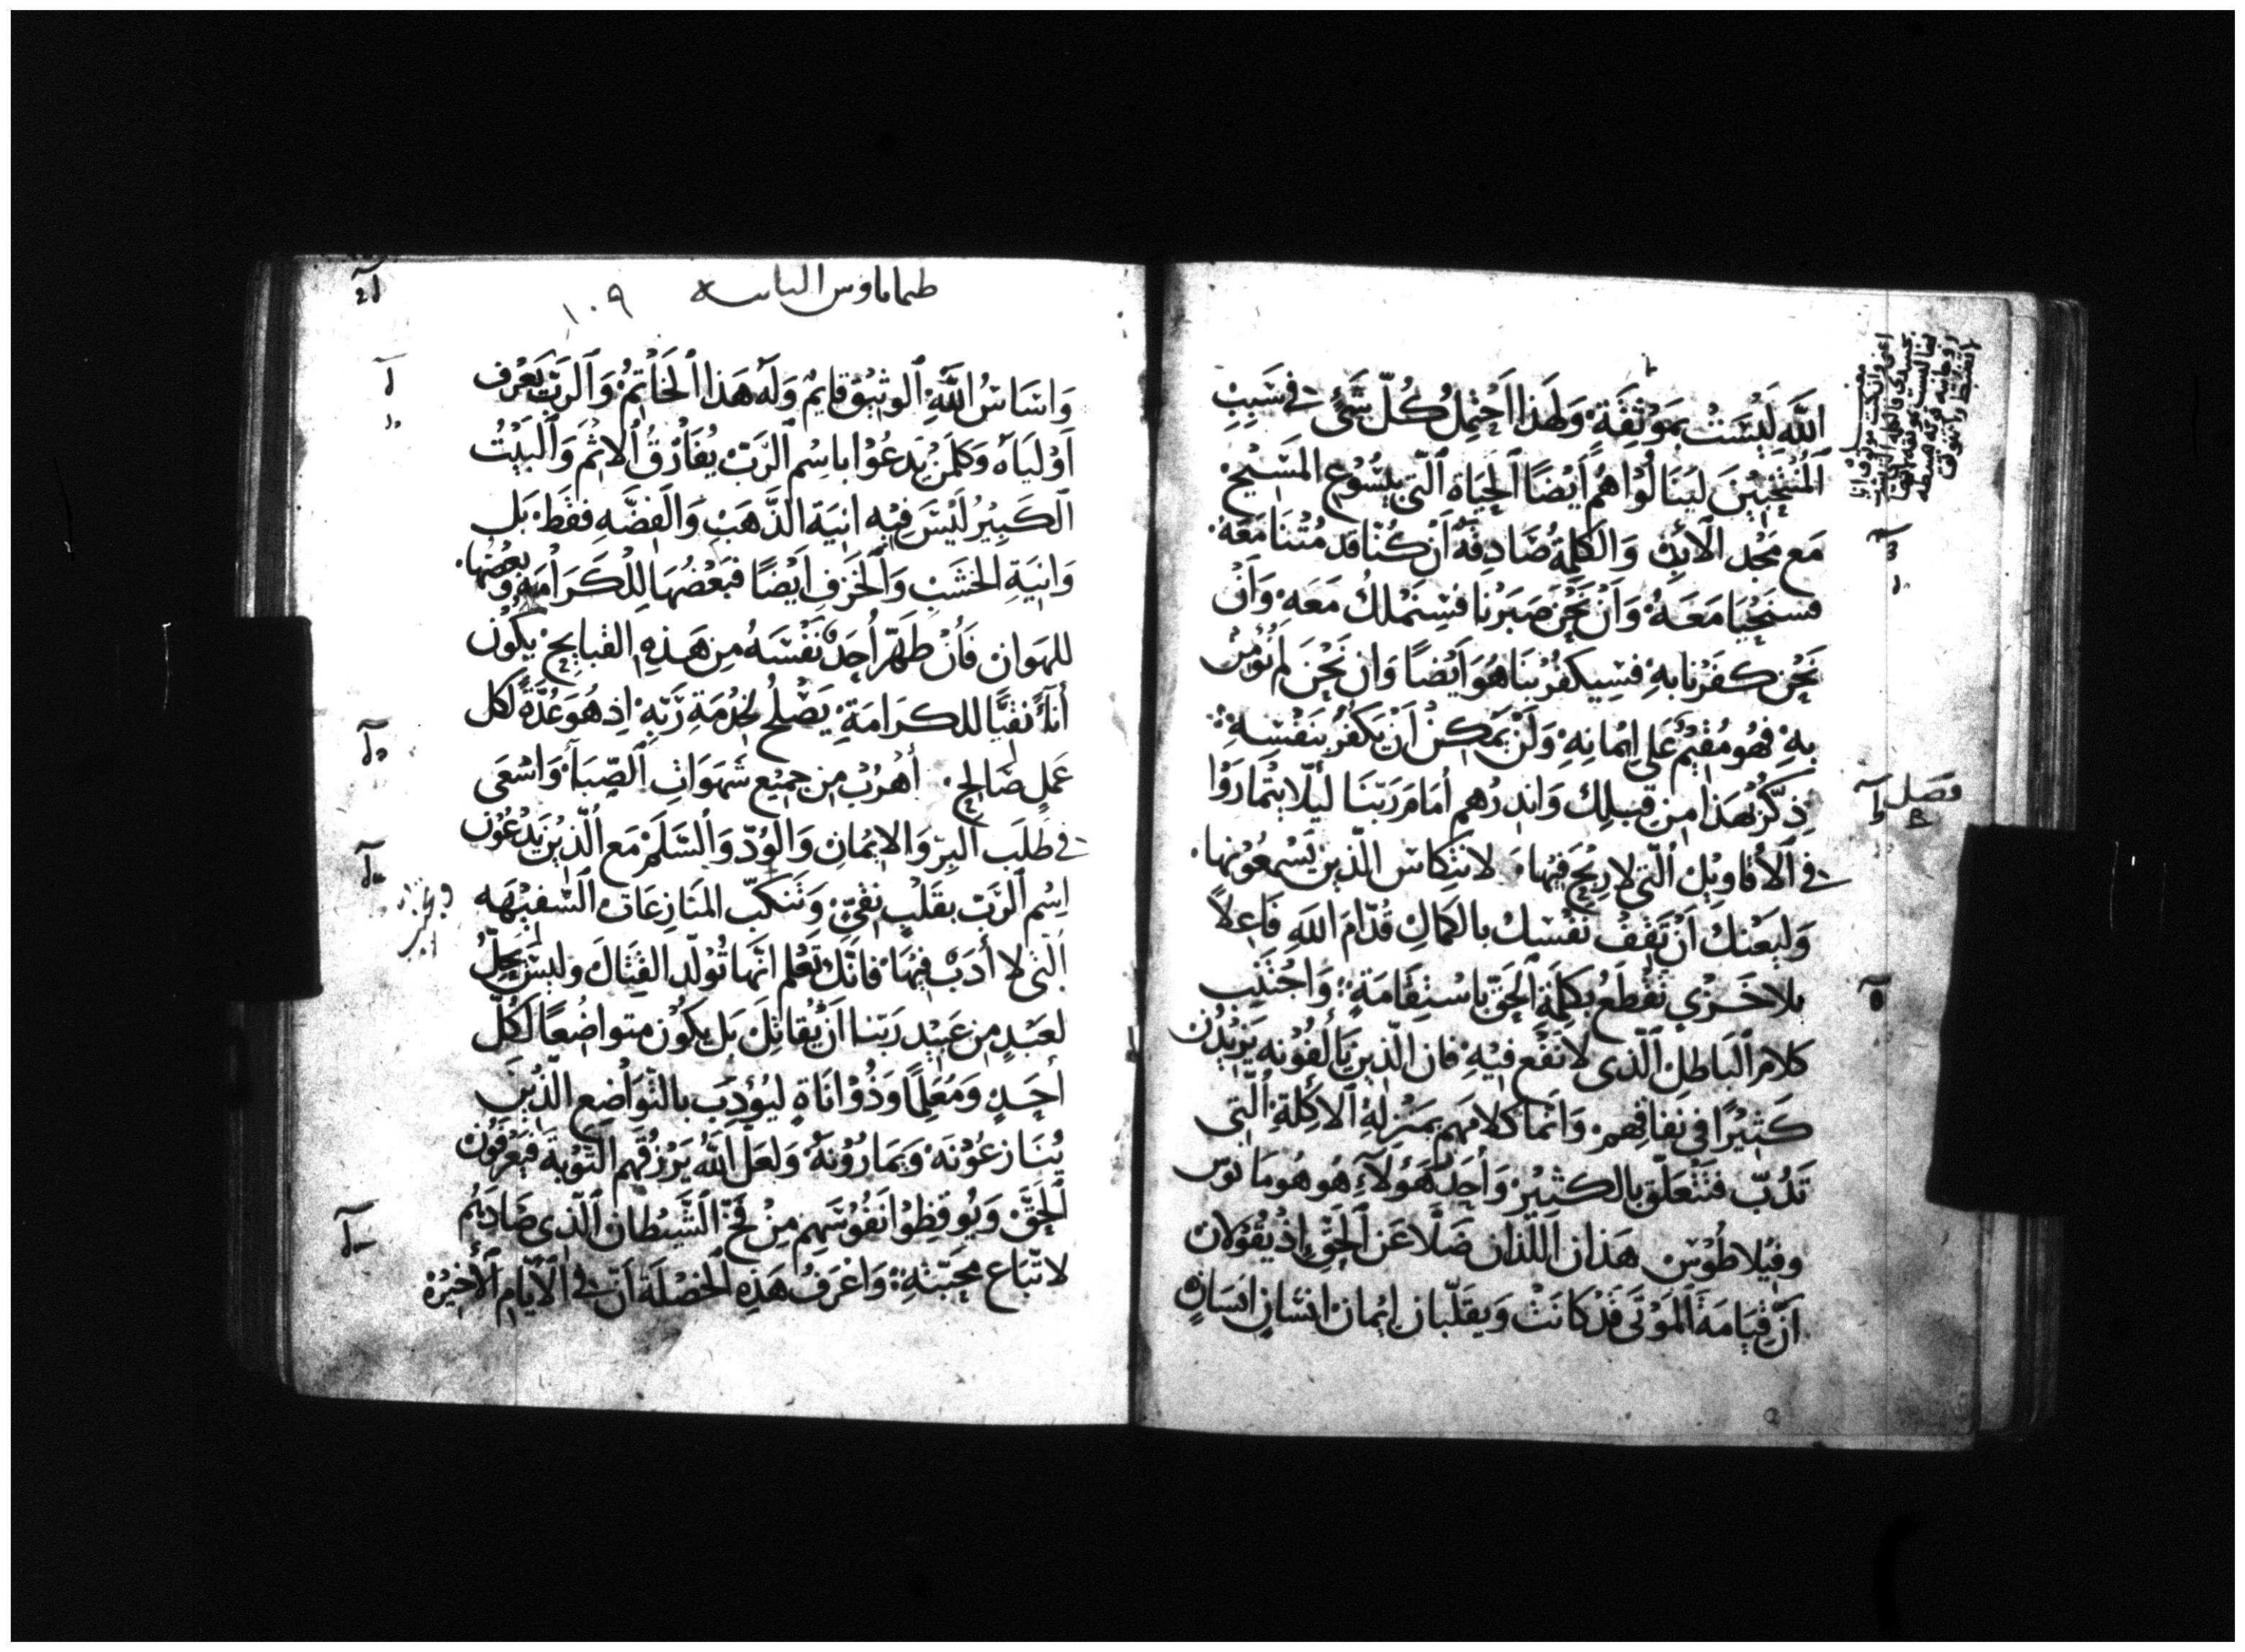 اللَّهِ لَيْسَتْ بمَوْثقَةٍ وَلهَذا اَحْتمِلُ كُلّ شَيْءٍ في سَبَبِ
المُنْتَجَبِيْنَ ليَنَالُوْا هُمْ أَيْضًا الحَيَاة الّتي بيَسُوْع المَسِيْح
مَع مَجْد الأبَدِ وَالكَلِمَةُ صَادِقَةٌ أَنْ كُنْا قَد مُتْنَا مَعَهُ
فَسنَحْيَا مَعَهُ وَانْ نَحْنُ صَبَرْنا فسَنَمْلكُ مَعَهُ وَانْ
نَحْن كَفَرْنا بهِ فسَيكفُرُ بنَا هُوَ ايْضًا وَان نَحْنُ لم نُؤْمنْ
بهِ فهُو مُقيْمٌ عَلى ايْمانِهِ وَلَنْ يمكِنْ أَنْ يَكْفُرَ بنَفْسِهِ
فصل
ذكّرْ بهَذا مِن قبَلِك وَانذِرْهم أمَامَ رَبّنَا ليَلّا يتْمارَوْا
في الأقاوِيْل الّتي لا رِبْحَ فيْها لانتِكاس الذّين يَسْمعُوْنها.
وَليَعْنك اَنْ تَقِفَ نفْسَك بالكمَال قدّامَ اللهَِ فَاعِلاً
بلا خَزْي تقْطَعُ بكلِمَة الحَقّ باسْتِقامَةٍ وَاجْتَنِب
كلام البَاطِل الّذى لا نَفْع فيْهِ فان الّذين يَألفُوْنه يَزِيْدُن
كَثيْرًا في نفاقِهم وَانّما كلامَهم بمَنْزلةِ الأكِلَة الّتي
تَدُبّ فتَتْعَلّق بالكثيْر وَأحَد هَؤلَاءِ هُو هُوما نوس
وفيْلاطُوْس هَذان اللّذان ضَلّا عَن الحَقّ اذْ يقُوْلان
أنّ قِيَامَة الموْتَى قدْ كانَتْ وَيقلّبان ايْمان انسَانٍ انسَانٍ
طيماتاوس الثانيه ١٠٩
وَاسَاسُ اللّهِ الوثيْق قايمٌ وَلَه هَذا الخَاتمُ وَالرَبّ يَعْرِف
اوْليَاه وَكلمَنْ يَدعُوْا باسْم الرَبّ يُفَارْقُ الاثمَ وَالبَيْتُ
الكبِيْرُ لَيْسَ فيْهِ انِيَة الذَّهَب وَالفِضّهِ فقَطْ بَل
وَانِيَة الخشَبِ وَالخَزَفِ ايْضًا فبَعْضُهَا لِلْكَرَامَهِ وَبعْضُها
للهَوانْ فَانْ طَهّر أحَدٌ نَفْسَهُ مِن هَذِهِ القبايح يكُوْن
أنآءً نقيًّا للكرَامَةِ يَصْلح لخِدْمَة رَبّهِ اذ هُوَ عُدّةً لكل
عَملٍ صَالحٍ أهْرُبْ مِن جميْع شَهَوَاتِ الصّبَا وَاسْعَى
في طلَب البِرّ وَالايْمانِ وَالوُدّ وَالسَّلمَ مَع الّذِيْن يَدْعُوْن
اِسْم الرَبّ بقَلبٍ نقيّ وَتنكبّ المنَازعَات السّفيْهَه
التّى لا أدَبَ فيْهَا فانّك تَعْلم انّها تُوْلّد القِتَال وليس يحِلُّ
لعَبْدٍ مِن عَبيْد رَبّنا أنْ يُقاتِلَ بَل يكُوْن متواضِعًا لكُلّ
أحَدٍ وَمُعَلِمًا وَذُوْ انَاةٍ ليُؤدِبَ بالتّوَاضِع الّذِيْن
يُنَازعُوْنهُ وَيمَارُوْنهُ وَلَعَلّ اللّهَ يَرْزقُهم التّوْبَة فيَعْرفوْن
الحَقّ وَيُوقِظُوْا نفُوْسَهم مِنْ فخّ الشّيْطان الّذِى صَادَهُم
لاتّباع محَبّتهِ وَاعْرَفْ هَذِهِ الخَصْلَة أنّ في الأيّام الأخِيْرة